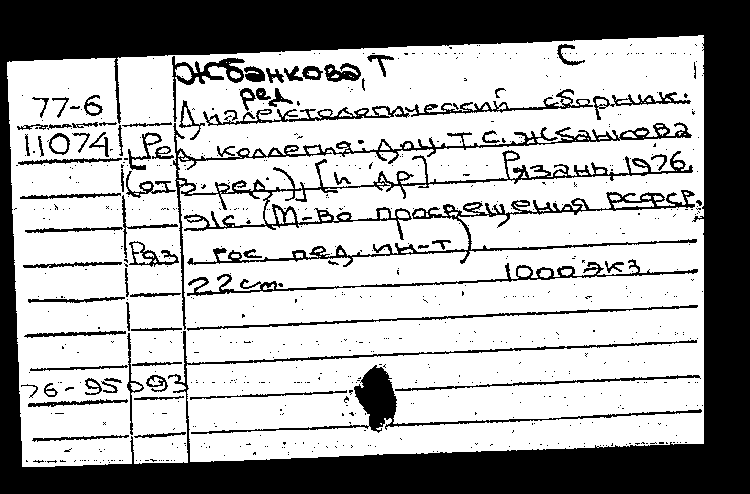 Жбанкова, Т С
ред.
77-6 Диалектологический сборник:
11074 [Ред. коллегия: доц. Т.С. Жбанкова
(отв. ред.), [и др]. - Рязань, 1976.
91с. (М-во просвещения РСФСР.
Ряз. гос. пед. ин-т).
22 cm. 1000 экз.
76-95093